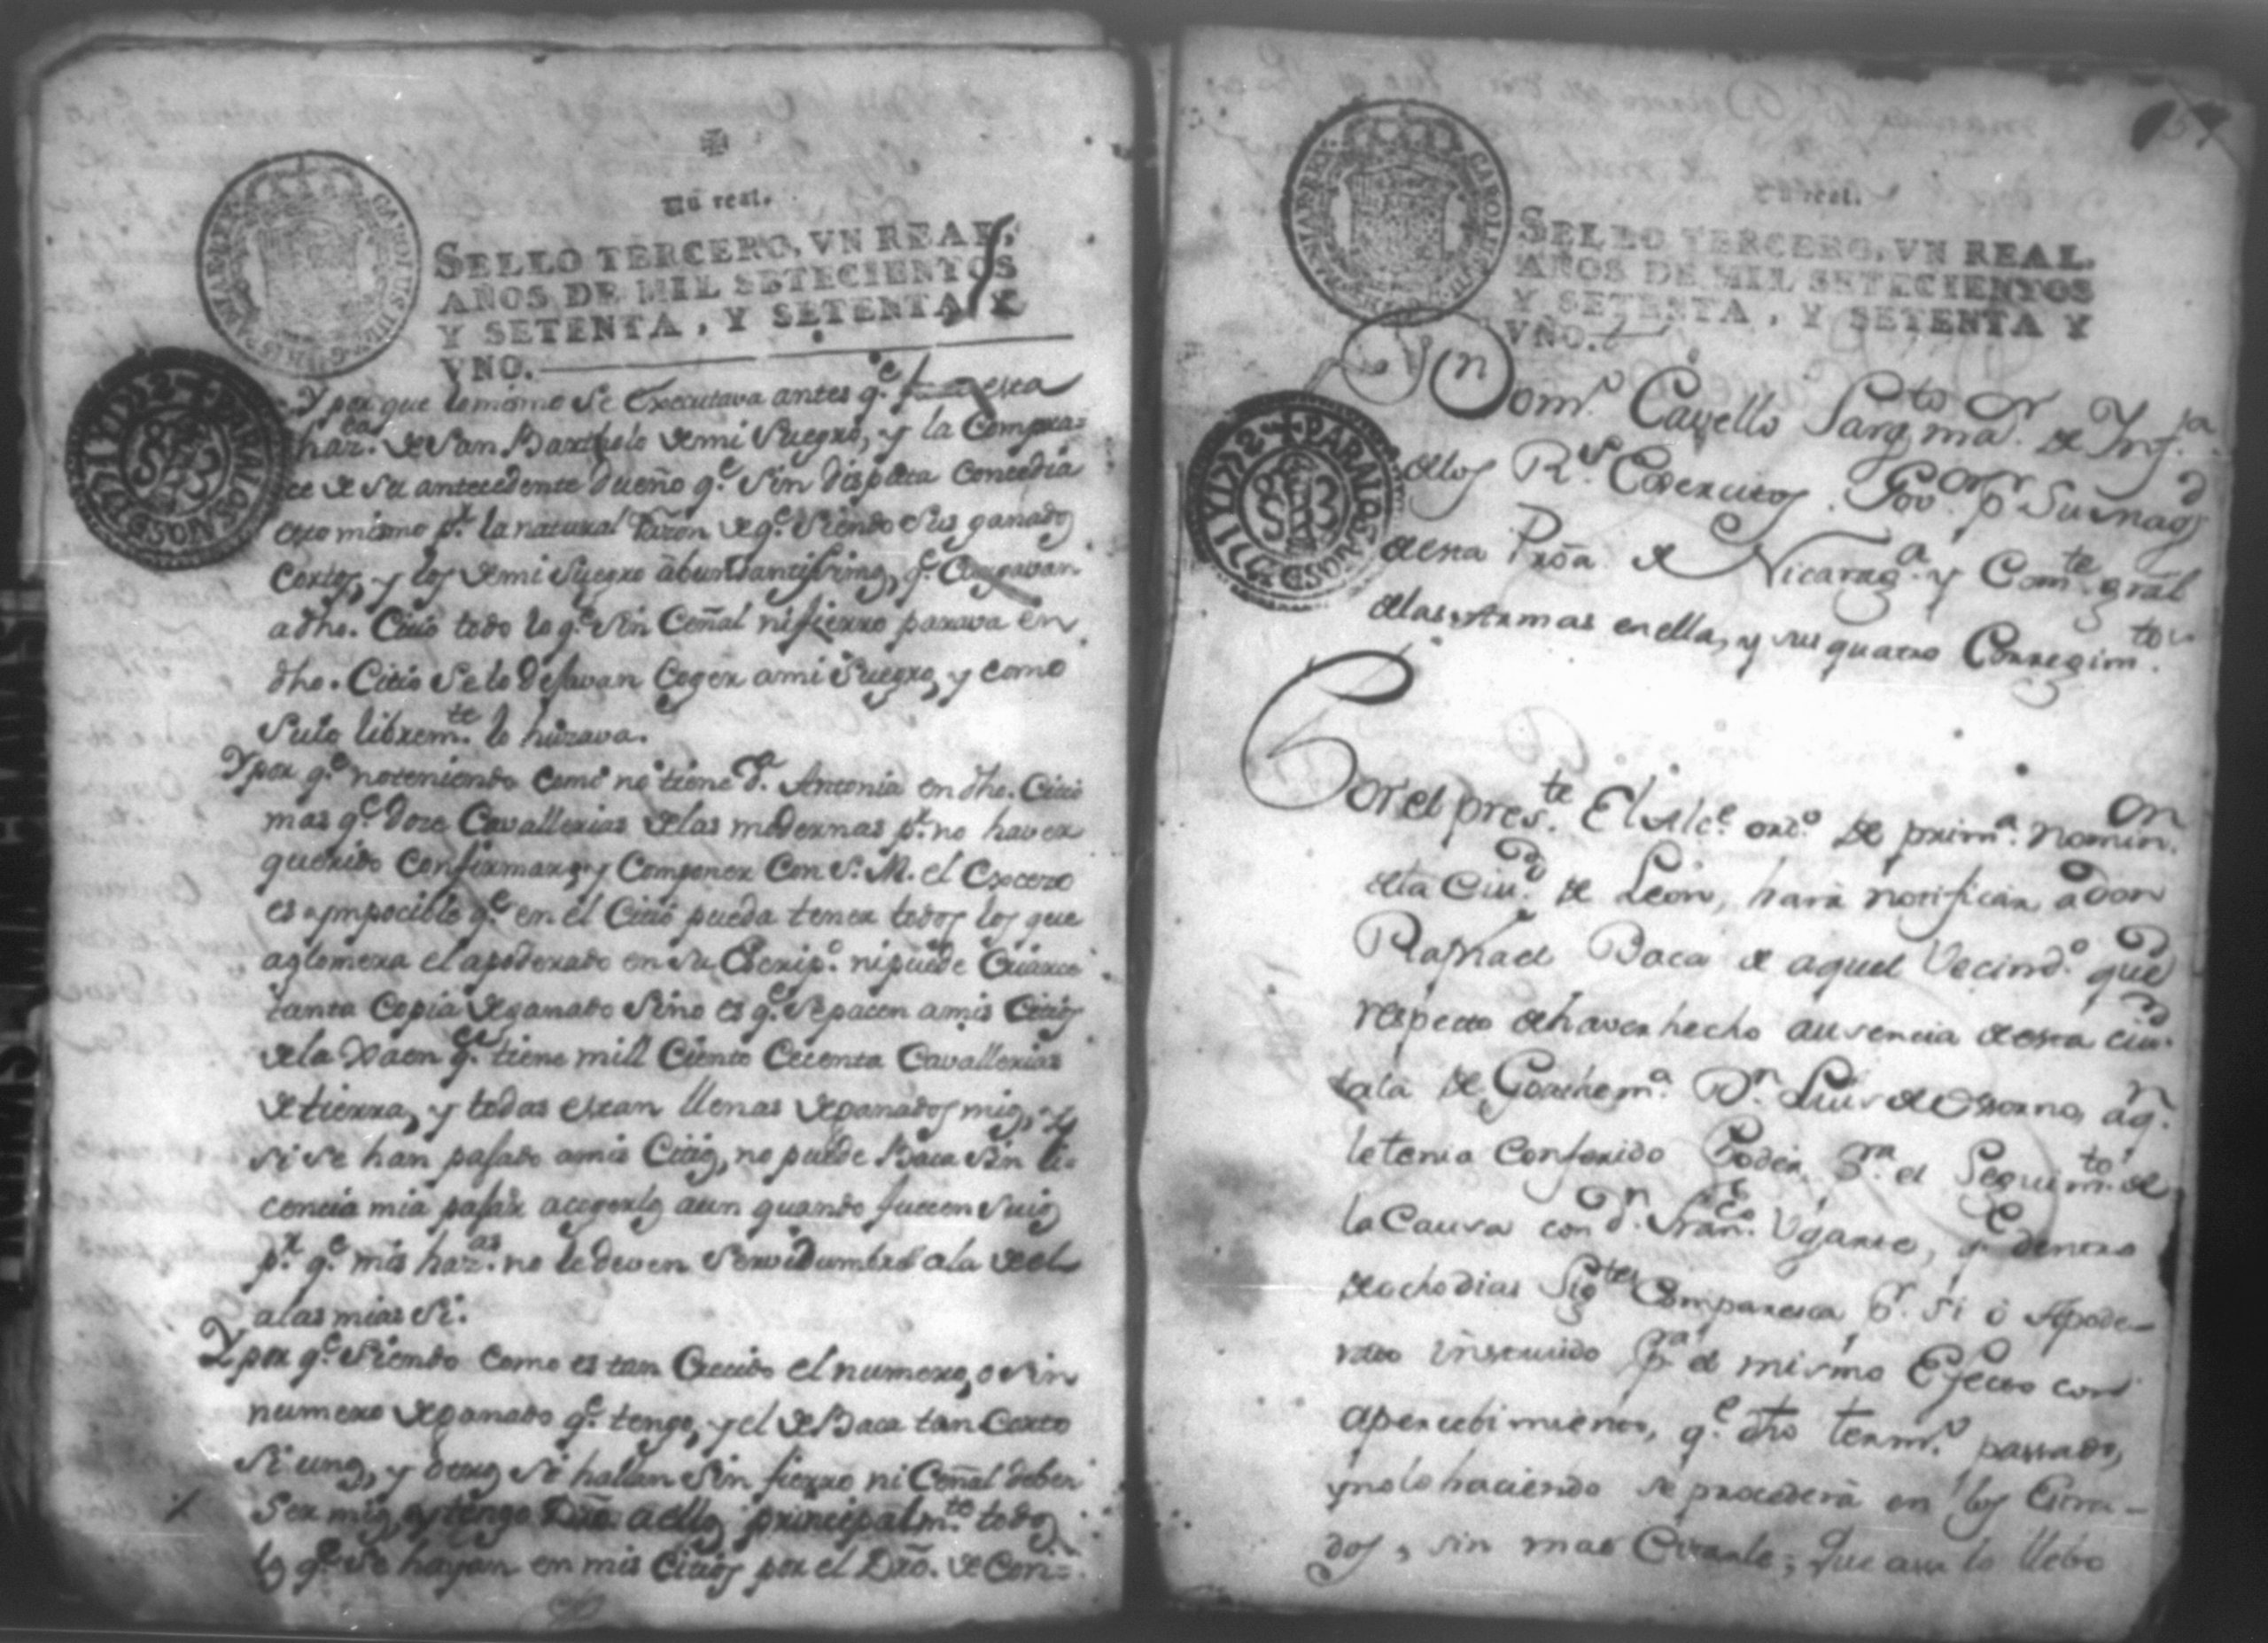 Un real.
SELLO TERCERO, VN REAL,
AÑOS DE MIL SETECIENTOS
Y SETENTA, Y SETENTA Y
VNO.
Y por que lo mismo se executava antes q.e esta
haz.da de San Bartholo de mi Suegro, y la compra=
ce de su antecedente dueño q.e sin disputa concedia
esto mismo p.r la natural razon de q.e siendo sus ganados
cortos, y los de mi Suegro abundantissimos, q.e
a dho. Citio todo lo q.e sin Señal ni fierro parava en
dho. Citio se lo dejavan coger a mi Suegro, y como
suio librem.te lo
Y por q.e no teniendo como no tiene d.a Antonia en dho. Citio
mas q.e doze Cavallerias de las modernas p.r no haver
querido confirmarse y componer con S. M. el Exceso
es ympocible q.e en el Citio pueda tener todos los que
aglomera el apoderado en su Escrip.o ni puede criarse
tanta copia de ganado sino es q.e se pacen a mis Citios
de la q.e tiene mill Ciento Cecenta Cavallerias
de tierra, y todas estan llenas de ganados mios, y
si se han pasado a mis Citios, no puede Baca sin li=
cencia mia pasar a cogerlos aun quando fuecen suios
p.r q.e mis haz.as no le deven servidumbre a la de el
a las mias si.
Y por q.e siendo como es tan crecido el numero, o sin
numero de ganado q.e tengo, y el de Baca tan corto
si unos, y otros se hallan sin fierro ni Señal deben
ser mios, y tengo Dro. a ellos principalm.te todos
los q.e se hayan en mis Citios por el Dro. de
Un real.
SELLO TERCERO, VN REAL.
AÑOS DE MIL SETECIENTOS
Y SETENTA, Y SETENTA Y
VNO.
Dn Dom.o Cavello Sarg.to ma.or de Ynf.ra
de los R.s Exercitos. Gov.or p.r Su Mag.d
de esta Pro.a de Nicarag.a y Com.te gral
de las Armas en ella, y sus quatro Corregim.tos
Por el pres.te El Alc.e ord.o de prim.a nomin.on
de la Ciu.d de Leon, hará notificar a don
Raphael Baca de aquel Vecind.o que
respecto de haver hecho ausencia de esta ciu.d
a la de Goathem.a D.n Luis de Osorno, a q.n
le tenia conferido Poder p.ra el Seguim.to de
la Causa con d.n Fran.co Ugarte, q.e dentro
de ocho dias Sig.tes Comparesca p.r si ó Apode-
rado instruido p.ra el mismo Efecto con
apercebimiento, q.e dho term.o passado,
y no lo haciendo se procederá en los Estra-
dos, sin mas Citarle; Que assi lo llebo